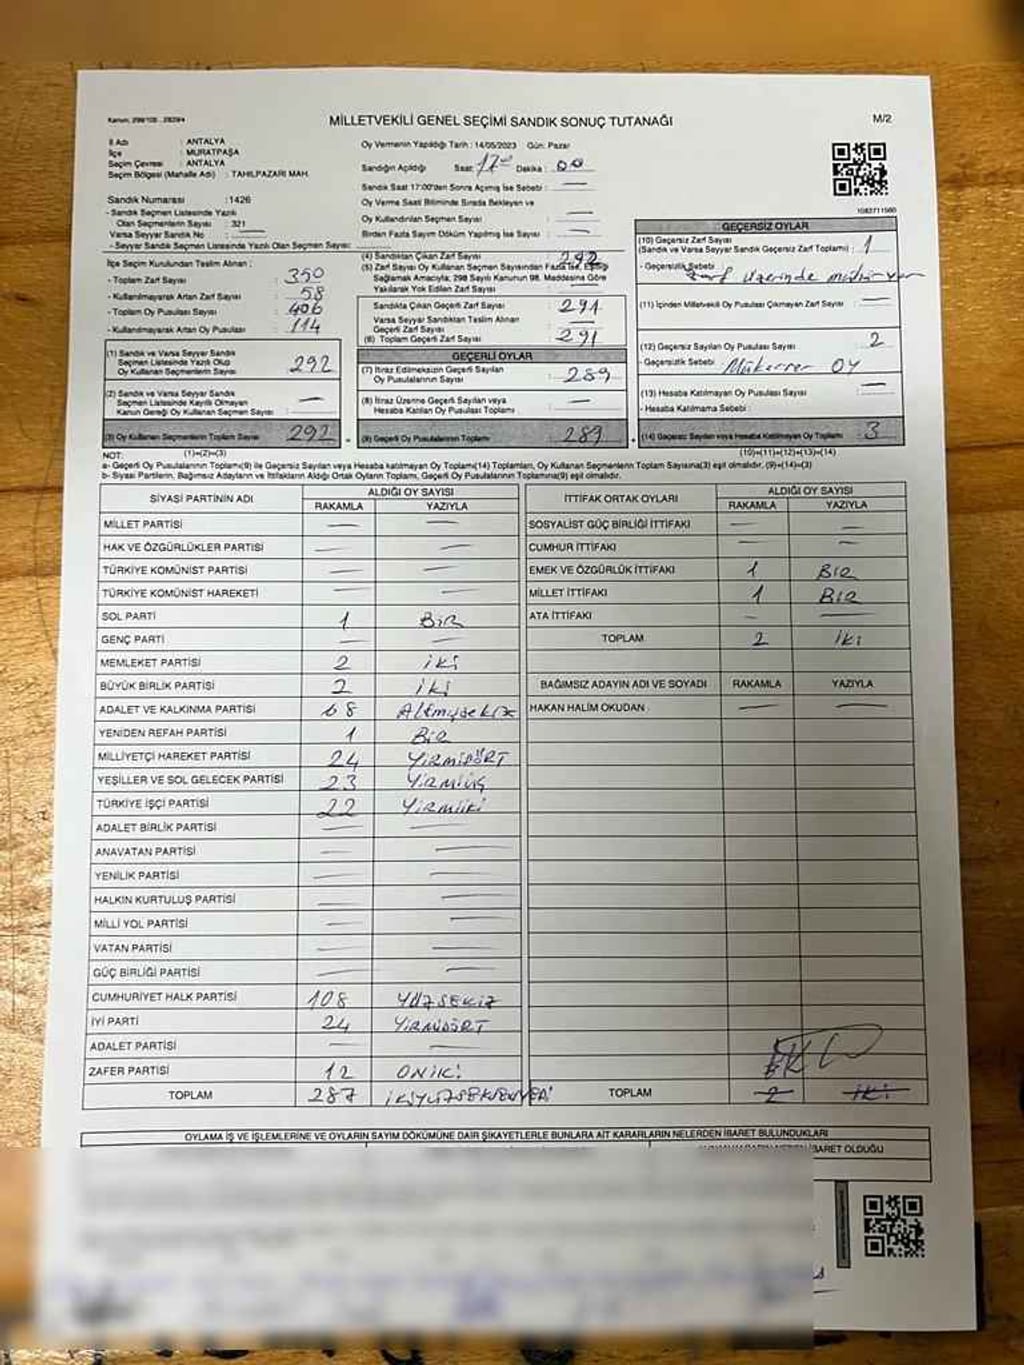 Kanun: 298/105 - 28294
MİLLETVEKİLİ GENEL SEÇİMİ SANDIK SONUÇ TUTANAĞI
M/2
İl Adı : ANTALYA
İlçe : MURATPAŞA
Seçim Çevresi : ANTALYA
Seçim Bölgesi (Mahalle Adı) : TAHILPAZARI MAH.
Oy Vermenin Yapıldığı Tarih : 14/05/2023 Gün: Pazar
Sandığın Açıldığı Saat: 17 00 Dakika : 00
Sandık Saat 17:00'den Sonra Açılmış İse Sebebi : —
Oy Verme Saat Bitiminde Sırada Bekleyen ve
Oy Kullandırılan Seçmen Sayısı : —
Birden Fazla Sayım Döküm Yapılmış İse Sayısı : —
Sandık Numarası : 1426
- Sandık Seçmen Listesinde Yazılı
Olan Seçmenlerin Sayısı : 321
Varsa Seyyar Sandık No : —
- Seyyar Sandık Seçmen Listesinde Yazılı Olan Seçmen Sayısı:
İlçe Seçim Kurulundan Teslim Alınan ;
- Toplam Zarf Sayısı : 350
- Kullanılmayarak Artan Zarf Sayısı : 58
- Toplam Oy Pusulası Sayısı : 406
- Kullanılmayarak Artan Oy Pusulası : 114
(1) Sandık ve Varsa Seyyar Sandık
Seçmen Listesinde Yazılı Olup
Oy Kullanan Seçmenlerin Sayısı : 292
(2) Sandık ve Varsa Seyyar Sandık
Seçmen Listesinde Kaydı Olmayan
Kanun Gereği Oy Kullanan Seçmen Sayısı : —
(3) Oy Kullanan Seçmenlerin Toplam Sayısı : 292
(1)+(2)=(3)
(4) Sandıktan Çıkan Zarf Sayısı : 292
(5) Zarf Sayısı Oy Kullanan Seçmen Sayısından Fazla İse, Eşitliği
Sağlamak Amacıyla, 298 Sayılı Kanunun 98. Maddesine Göre
Yakılarak Yok Edilen Zarf Sayısı : —
Sandıkta Çıkan Geçerli Zarf Sayısı : 291
Varsa Seyyar Sandıktan Teslim Alınan
Geçerli Zarf Sayısı : —
(6) Toplam Geçerli Zarf Sayısı : 291
GEÇERLİ OYLAR
(7) İtiraz Edilmeksizin Geçerli Sayılan
Oy Pusulalarının Sayısı : 289
(8) İtiraz Üzerine Geçerli Sayılan veya
Hesaba Katılan Oy Pusulaları Toplamı : —
(9) Geçerli Oy Pusulalarının Toplamı : 289
1082711560
GEÇERSİZ OYLAR
(10) Geçersiz Zarf Sayısı
(Sandık ve Varsa Seyyar Sandık Geçersiz Zarf Toplamı) : 1
- Geçersizlik Sebebi : Zarf Üzerinde mühür var
(11) İçinden Milletvekili Oy Pusulası Çıkmayan Zarf Sayısı : —
(12) Geçersiz Sayılan Oy Pusulası Sayısı : 2
- Geçersizlik Sebebi : Mükerrer OY
(13) Hesaba Katılmayan Oy Pusulası Sayısı : —
- Hesaba Katılmama Sebebi :
(14) Geçersiz Sayılan veya Hesaba Katılmayan Oy Toplamı : 3
(10)+(11)+(12)+(13)=(14)
NOT:
a- Geçerli Oy Pusulalarının Toplamı(9) ile Geçersiz Sayılan veya Hesaba katılmayan Oy Toplamı(14) Toplamları, Oy Kullanan Seçmenlerin Toplam Sayısına(3) eşit olmalıdır. (9)+(14)=(3)
b- Siyasi Partilerin, Bağımsız Adayların ve İttifakların Aldığı Ortak Oyların Toplamı, Geçerli Oy Pusulalarının Toplamına(9) eşit olmalıdır.
SİYASİ PARTİNİN ADI ALDIĞI OY SAYISI
RAKAMLA YAZIYLA
MİLLET PARTİSİ — —
HAK VE ÖZGÜRLÜKLER PARTİSİ — —
TÜRKİYE KOMÜNİST PARTİSİ — —
TÜRKİYE KOMÜNİST HAREKETİ — —
SOL PARTİ 1 BİR
GENÇ PARTİ — —
MEMLEKET PARTİSİ 2 iki
BÜYÜK BİRLİK PARTİSİ 2 iki
ADALET VE KALKINMA PARTİSİ 68 Altmışsekiz
YENİDEN REFAH PARTİSİ 1 Bir
MİLLİYETÇİ HAREKET PARTİSİ 24 YİRMİDÖRT
YEŞİLLER VE SOL GELECEK PARTİSİ 23 Yirmiüç
TÜRKİYE İŞÇİ PARTİSİ 22 Yirmiiki
ADALET BİRLİK PARTİSİ — —
ANAVATAN PARTİSİ — —
YENİLİK PARTİSİ — —
HALKIN KURTULUŞ PARTİSİ — —
MİLLİ YOL PARTİSİ — —
VATAN PARTİSİ — —
GÜÇ BİRLİĞİ PARTİSİ — —
CUMHURİYET HALK PARTİSİ 108 YÜZSEKİZ
İYİ PARTİ 24 YİRMİDÖRT
ADALET PARTİSİ — —
ZAFER PARTİSİ 12 ONİKİ
TOPLAM 287 İKİYÜZSEKSENYEDİ
İTTİFAK ORTAK OYLARI ALDIĞI OY SAYISI
RAKAMLA YAZIYLA
SOSYALİST GÜÇ BİRLİĞİ İTTİFAKI — —
CUMHUR İTTİFAKI — —
EMEK VE ÖZGÜRLÜK İTTİFAKI 1 BİR
MİLLET İTTİFAKI 1 BİR
ATA İTTİFAKI — —
TOPLAM 2 iki
BAĞIMSIZ ADAYIN ADI VE SOYADI RAKAMLA YAZIYLA
HAKAN HALİM OKUDAN — —
TOPLAM 2 iki
OYLAMA İŞ VE İŞLEMLERİNE VE OYLARIN SAYIM DÖKÜMÜNE DAİR ŞİKAYETLERLE BUNLARA AİT KARARLARIN NELERDEN İBARET BULUNDUKLARI
İBARET OLDUĞU